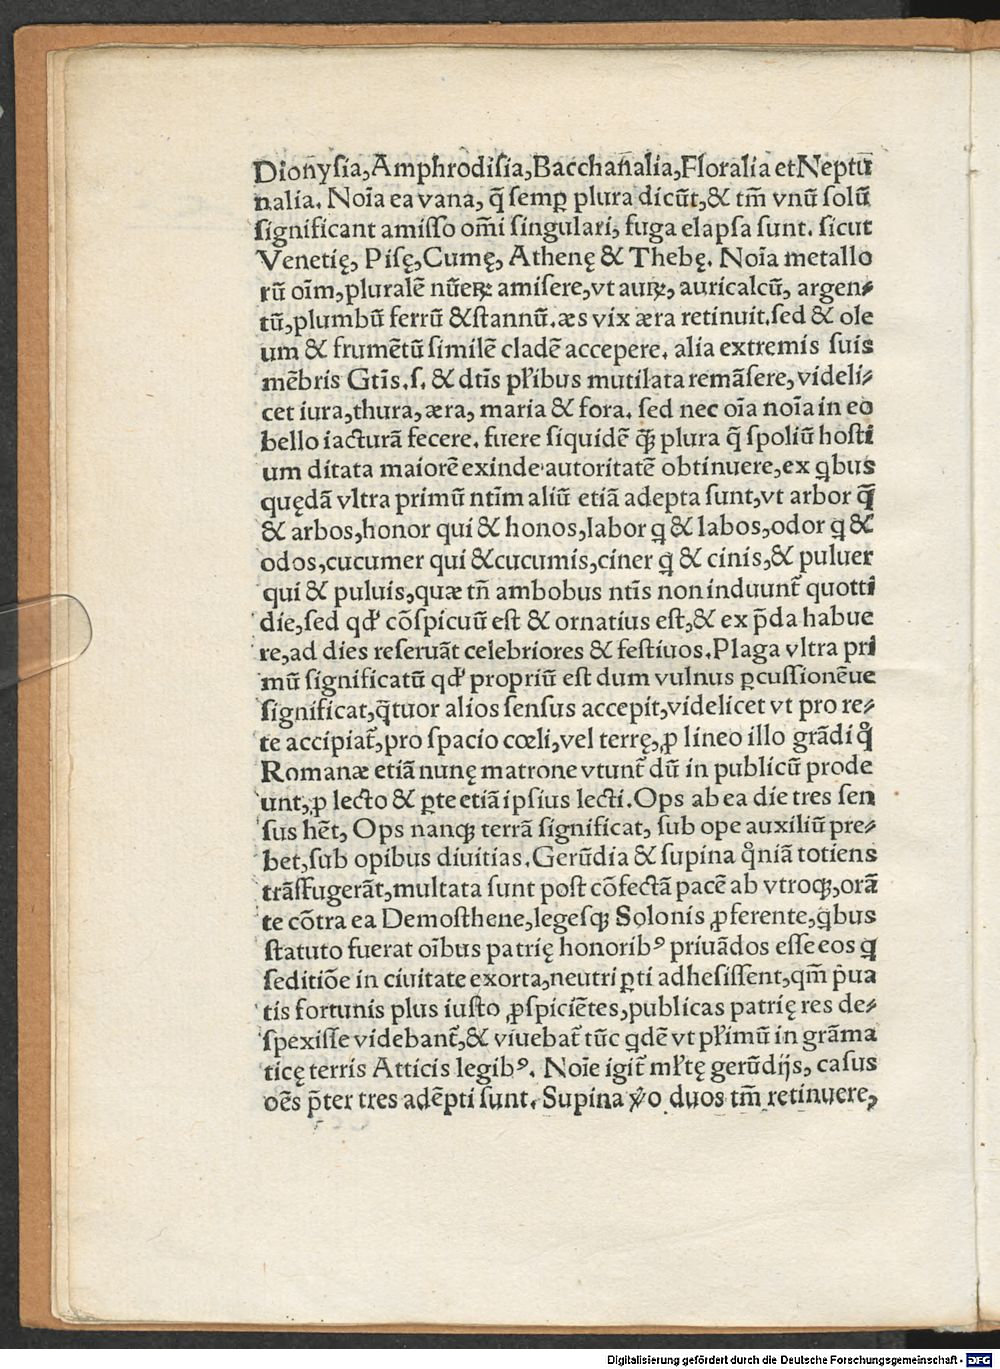 Dionysia,Amphrodisia,Bacchanalia,Floralia et Neptū
nalia. Noīa ea vana, q̄ semꝑ plura dicūt,& tm̄ vnū solū
significant amisso om̄i singulari, fuga elapsa sunt. sicut
Venetię, Pisę,Cumę, Athenę & Thebę. Noīa metallo
rū oīm,pluralē nūeꝝ amisere,vt auꝝ, auricalcū, argen⸗
tū,plumbū ferrū &stannū.æs vix æra retinuit.sed & ole
um & frumētū similē cladē accepere. alia extremis suis
mēbris Gtīs.s. & dtīs pl̄ibus mutilata remāsere, videli⸗
cet iura,thura,æra, maria & fora. sed nec oīa noīa in eo
bello iacturā fecere. fuere siquidē ꝙ̄ plura q̄ spoliū hosti
um ditata maiorē exinde autoritatē obtinuere,ex ꝗbus
quędā vltra primū ntīm aliū etiā adepta sunt,vt arbor q̄
& arbos,honor qui & honos,labor ꝗ & labos,odor ꝗ &
odos,cucumer qui &cucumis,ciner ꝗ & cinis,& puluer
qui & puluis,quæ tn̄ ambobus ntīs non induunt᷑ quotti
die,sed qd᷑ cōspicuū est & ornatius est,& ex p̄da habue
re,ad dies reseruāt celebriores & festiuos.Plaga vltra pri
mū significatū qd᷑ propriū est dum vulnus ꝑcussionēue
significat,q̄tuor alios sensus accepit,videlicet vt pro re⸗
te accipiat᷑,pro spacio cœli,vel terrę,ꝓ lineo illo grādi qͦ
Romanæ etiā nunę matrone vtunt᷑ dū in publicū prode
unt,ꝓ lecto & ꝑte etiā ipsius lecti.Ops ab ea die tres sen
sus hēt, Ops nanqꝫ terrā significat, sub ope auxiliū pre⸗
bet,sub opibus diuitias.Gerūdia & supina qͦniā totiens
trāsfugerāt,multata sunt post cōfectā pacē ab vtroqꝫ,orā
te cōtra ea Demosthene,legesqꝫ Solonis ꝓferente,ꝗbus
statuto fuerat oībus patrię honoribꝰ priuādos esse eos ꝗ
seditiōe in ciuitate exorta,neutri ꝑti adhesissent,qm̄ pͥua
tis fortunis plus iusto ꝓspiciētes,publicas patrię res de⸗
spexisse videbant᷑,& viuebat᷑ tūc ꝗdē vt pl̄imū in grāma
ticę terris Atticis legibꝰ. Noīe igit᷑ ml̄tę gerūdijs, casus
oēs p̄ter tres adēpti sunt. Supina v̓o duos tm̄ retinuere,
Digitalisierung gefördert durch die Deutsche Forschungsgemeinschaft - DFG